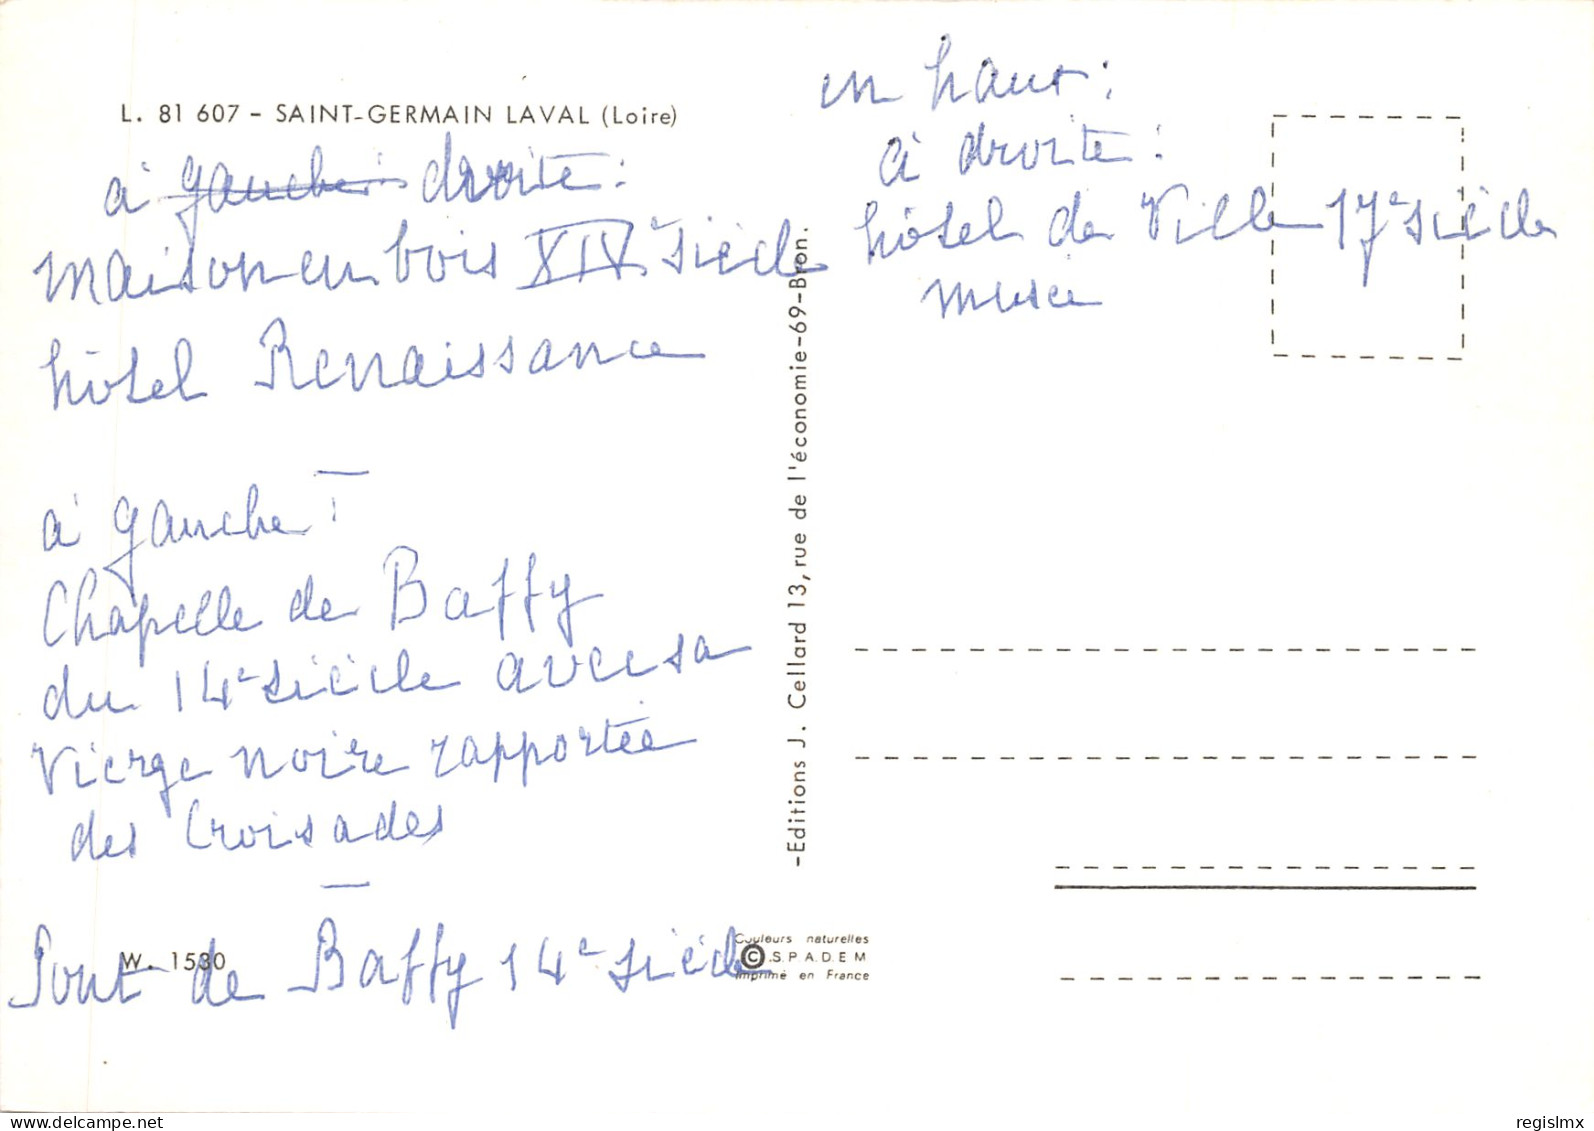 L. 81 607 - SAINT-GERMAIN LAVAL (Loire)
à gauche droite :
maison en bois XIVe siècle
hôtel Renaissance
à gauche :
Chapelle de Baffy
du 14e siècle avec sa
Vierge noire rapportée
des Croisades
W. 1530
Pont de Baffy 14e siècle
-Editions J. Cellard 13, rue de l'économie-69-Bron.
Couleurs naturelles
© S.P.A.D.E.M
Imprimé en France
en haut :
à droite :
hôtel de Ville 17e siècle
musée
regislmx